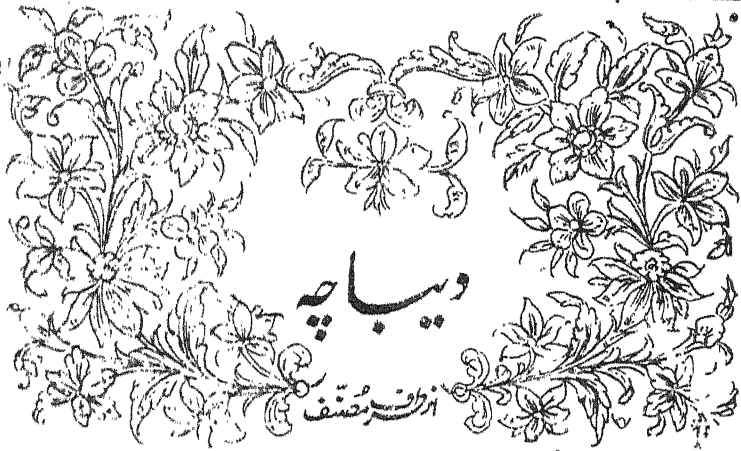 دیباچہ
از طرف مصنّف